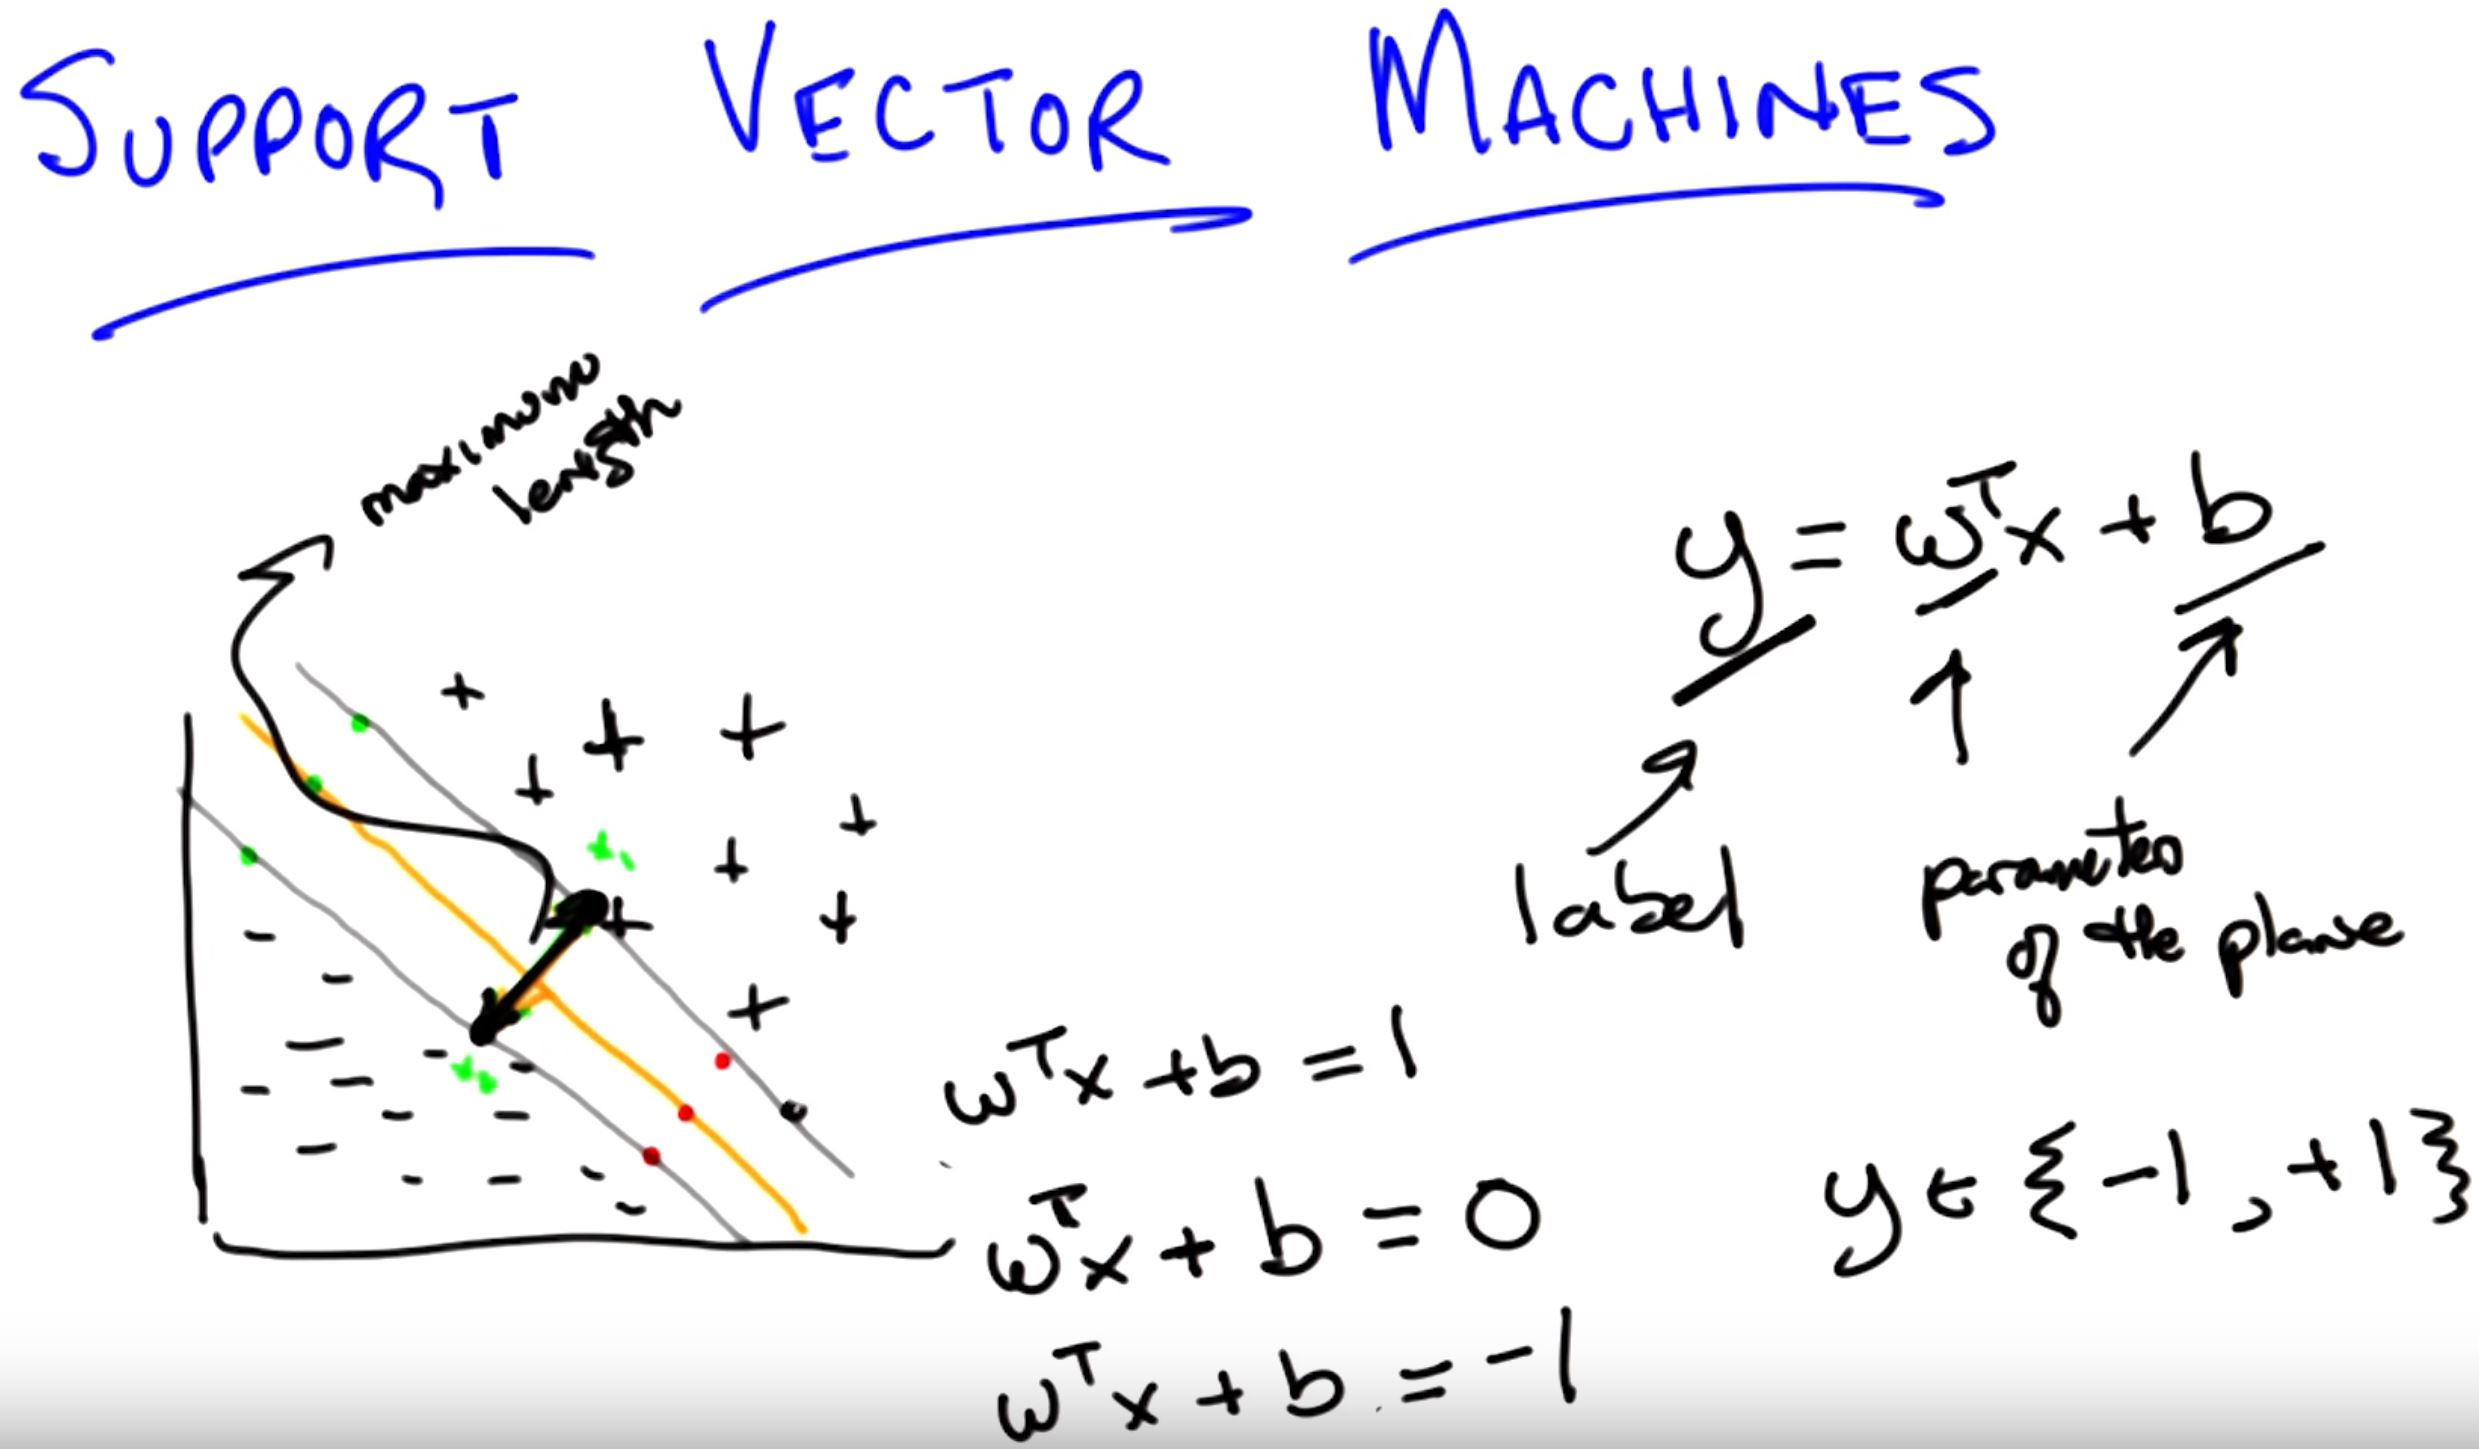 SUPPORT VECTOR MACHINES
maximum
length
y = wᵀx + b
label
parameters
of the plane
wᵀx + b = 1
wᵀx + b = 0
y ∈ {-1, +1}
wᵀx + b = -1